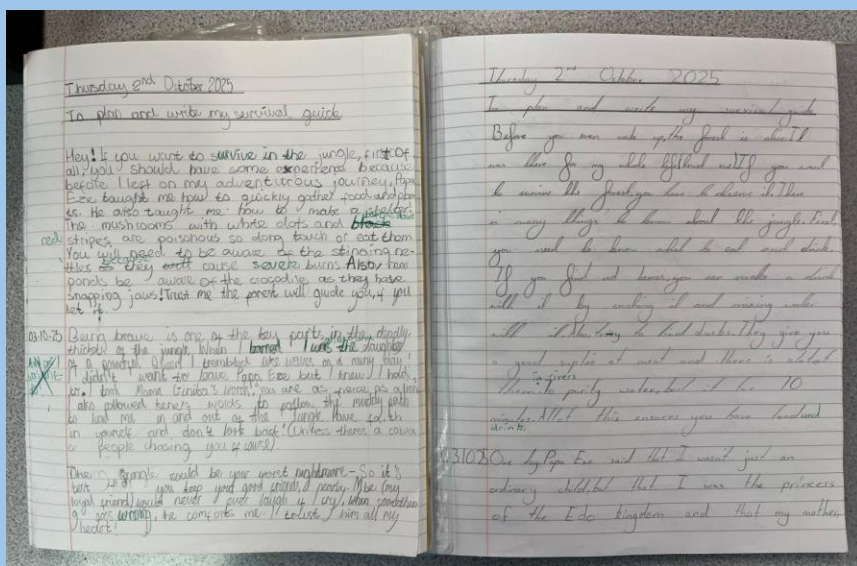 Thursday 2nd October 2025
To plan and write my survival guide
Hey! If you want to survive in the jungle, first of
all, you should have some experience because
before I left on my adventurous journey, Papa
Eze taught me how to quickly gather food and
He also taught me how to make a shelter.
The mushrooms with white dots and
red
stripes are poisonous so dong touch or eat them
You will need to be aware of the stinging ne-
ttles because they cause severe burns. Also, 
ponds be aware of the crocodile as they have
snapping jaws! Trust me the forest will guide you, if you
let it.
03-10-25
Being brave is one of the key parts in the deadly
thicket of the jungle. When I learned I was the daughter
of a powerful Queen I trembled like waves on a rainy day
I didn't want to leave Papa Eze but I knew I had
to. Mama words, you are as fierce as a
also followed words to follow the muddy path
to lead me in and out of the jungle. Have faith
in yourself and don't look back! (Unless theres a cobra
or people chasing you of course).
jungle could be your worst nightmare - So it's
best you keep your good friends nearby. (my
loyal friend) would never just laugh if I cry, when
goes wrong, he comforts me. I trust him all my
Thursday 2nd October 2025
To plan and write my survival guide
Before you even wake up, the forest is alive. I
was there for my whole If you want
to survive the forest, you have to observe it. There
is many things to know about the jungle. First,
you need to know what to eat and drink.
If you find berries, you can make a drink
with it by it and mixing water
with it. Also, try to find ducks. They give you
a good supply of meat and there is
rivers
to purify water, boil it for 10
minutes. All of this ensures you have food and
drink.
03.10.25 One day, Papa Eze said that I wasn't just an
ordinary child, but that I was the princess
of the Edo kingdom and that my mother,